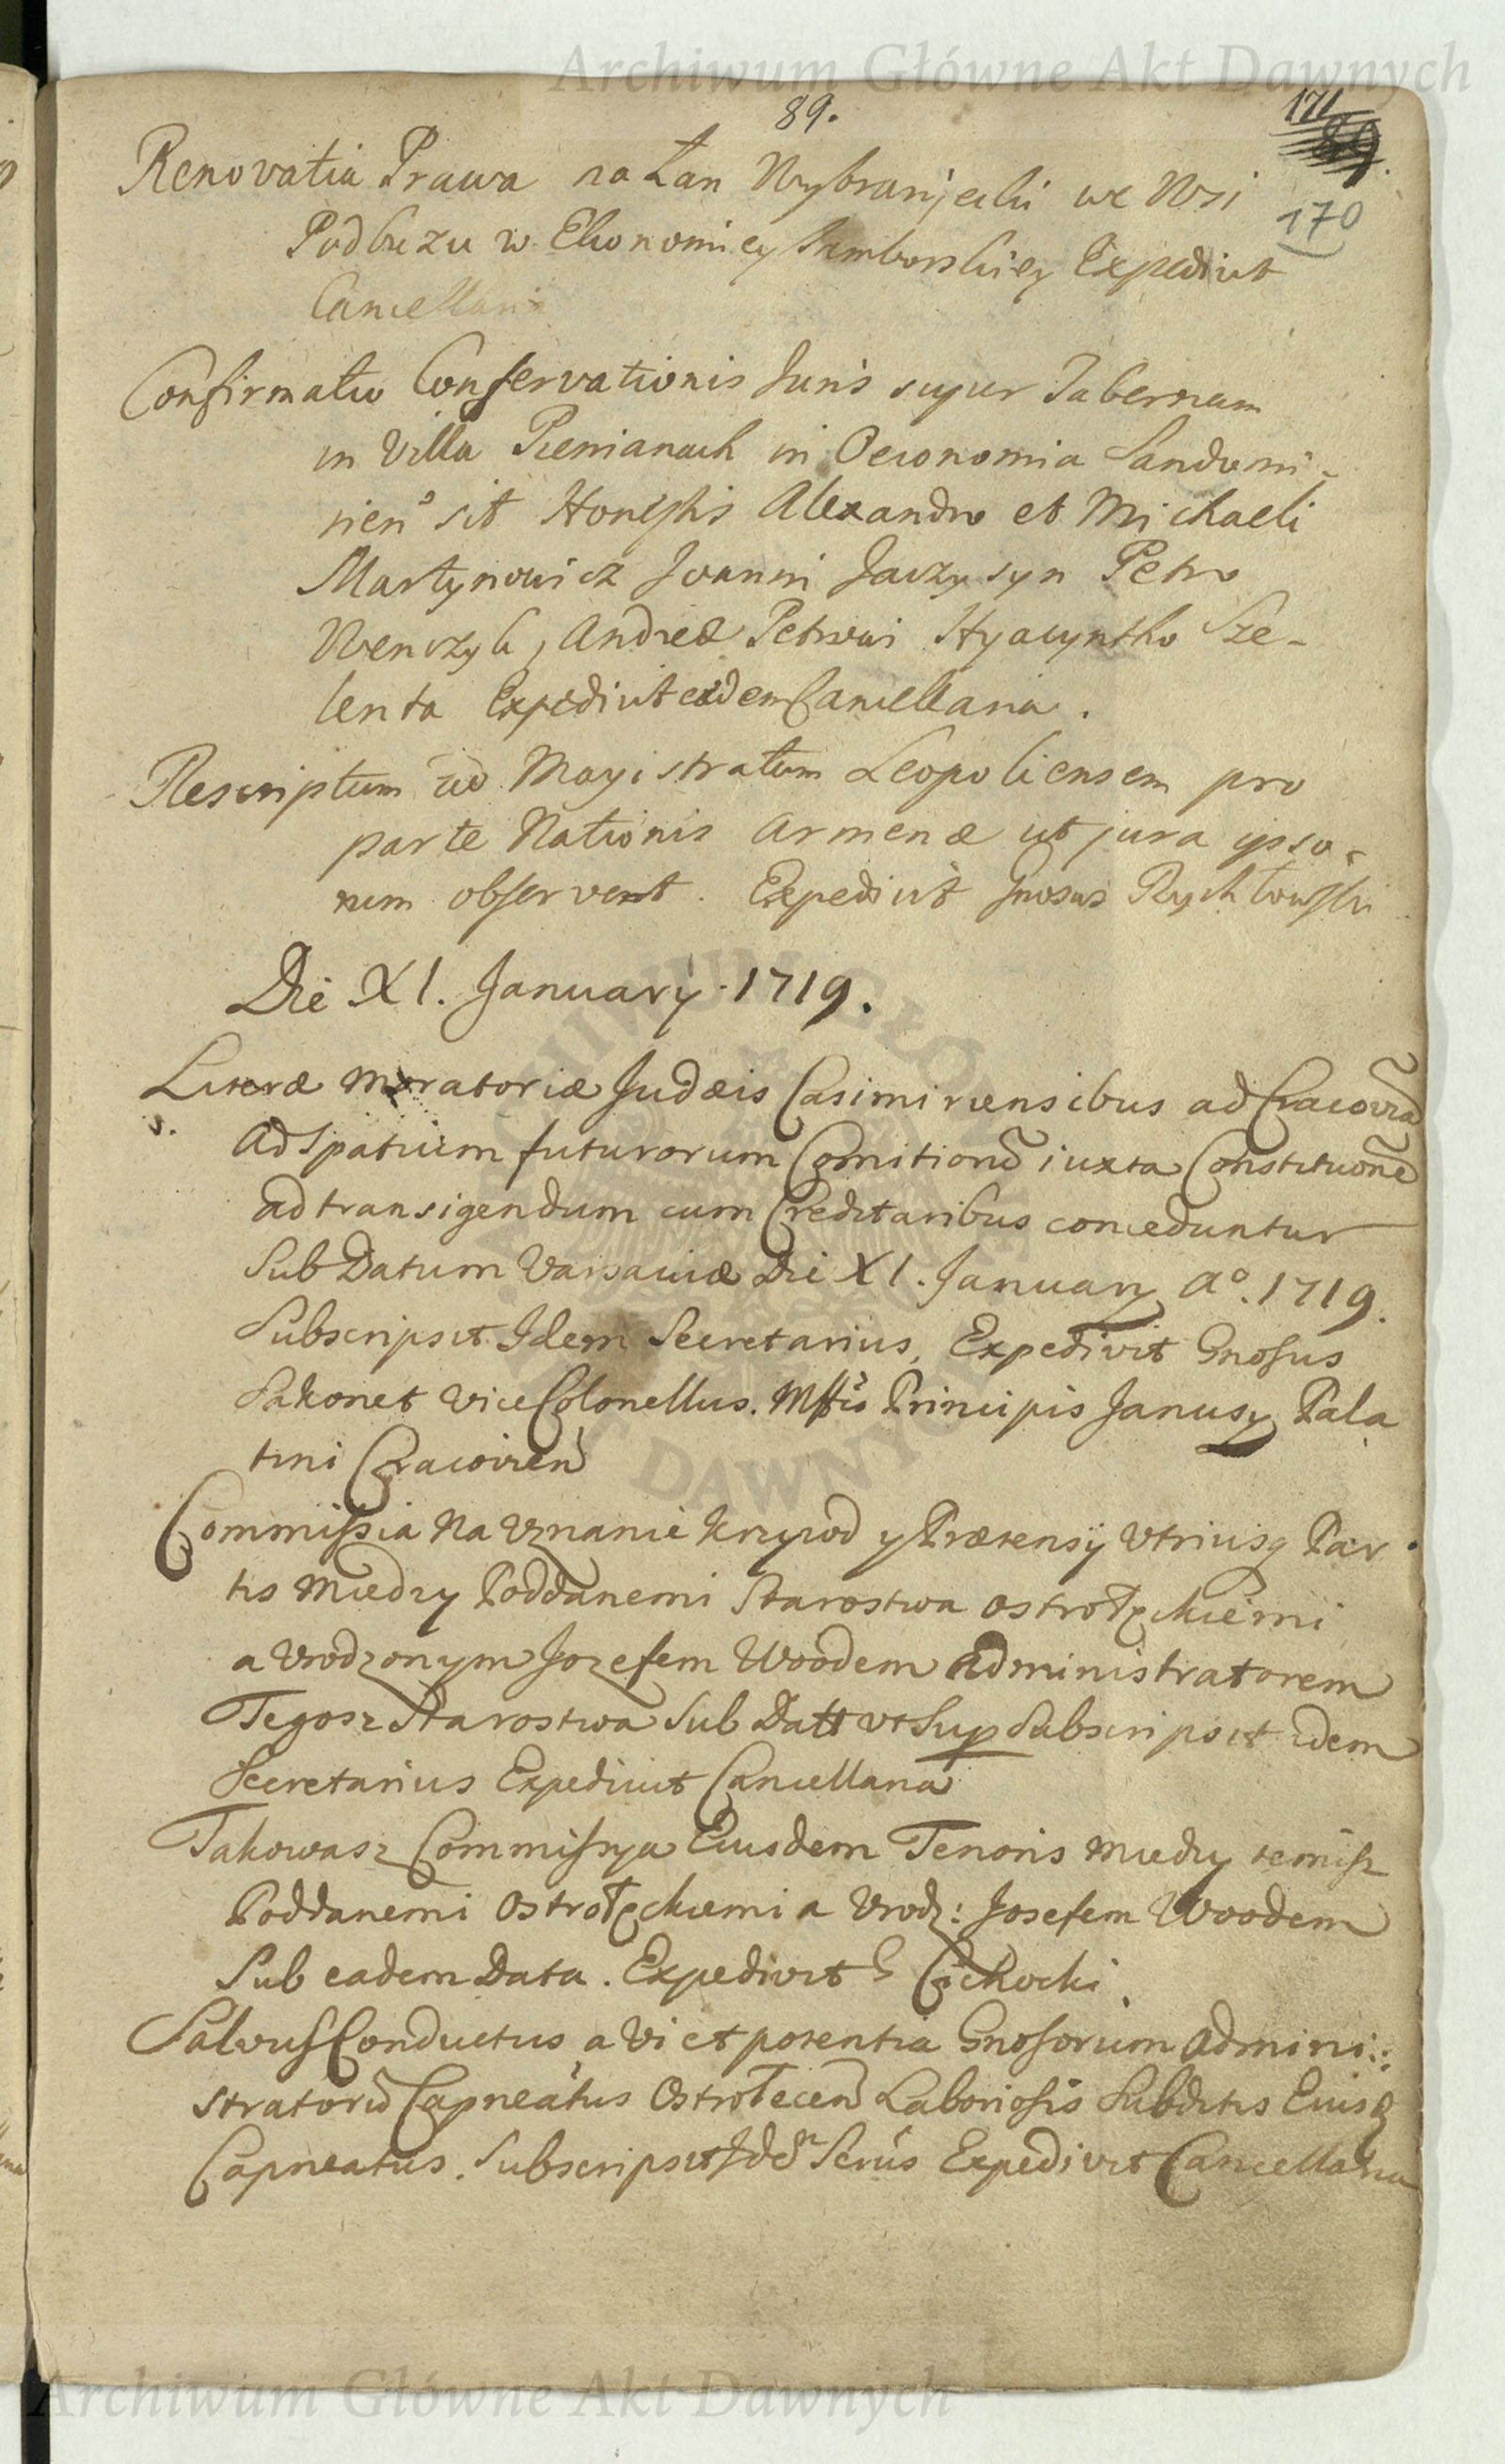 Archiwum Główne Akt Dawnych
89.
171
89.
170
Renovatia Prawa na Łan Wybranjecki we Wsi
Podbuzu w Ekonomiey Samborskiey Expedivit
Cancellaria
Confirmatio Conservationis Juris super Tabernam
in Villa Pienianach in Oeconomia Sandomi-
rien sit Honestis Alexandro et Michaeli
Martynowicz Joanni Jaczysyn Petro
Wenczyk, Andreæ Petrowi Hyacyntho Sze-
lenta Expedivit eadem Cancellaria.
Rescriptum ad Magistratum Leopoliensem pro
parte Nationis Armenæ ut jura ipso-
rum observent. Expedivit Gnosus Rychłowski
Die XI. January. 1719.
Literæ Moratoriæ Judæis Casimiriensibus ad Cracoviã
s.
Ad Spatium futurorum Comitionũ iuxta Constitutionẽ
ad transigendum cum Creditaribus conceduntur
Sub Datum Varsaviæ Die XI. January Aº. 1719.
Subscripsit Idem Secretarius, Expedivit Gnosus
Sakonet Vice Colonellus. Mstis Principis Janusy Pala
tini Cracovien
Commissia Na Uznanie krzywd y Prætensÿ Utriusq Par
tis Miedzy Poddanemi Starostwa Ostrołęckiemi
a Urodzonym Jozefem Woodem Administratorem
Tegosz Starostwa Sub Datt ut Sup Subscripsit idem
Secretarius Expedivit Cancellaria
Takowasz Commissya Eiusdem Tenoris Miedzy temisz
Poddanemi Ostrołęckiemi a Urodz: Josefem Woodem
Sub eadem Data. Expedivit G Cichocki.
Salvus Conductus a Vi et potentia Gnosorum Admini:
stratorũ Capneatus Ostrołecen Laboriosis Subditis Eiusd
Capneatus. Subscripsit Idẽ Serius Expedivit Cancellaria
Archiwum Główne Akt Dawnych